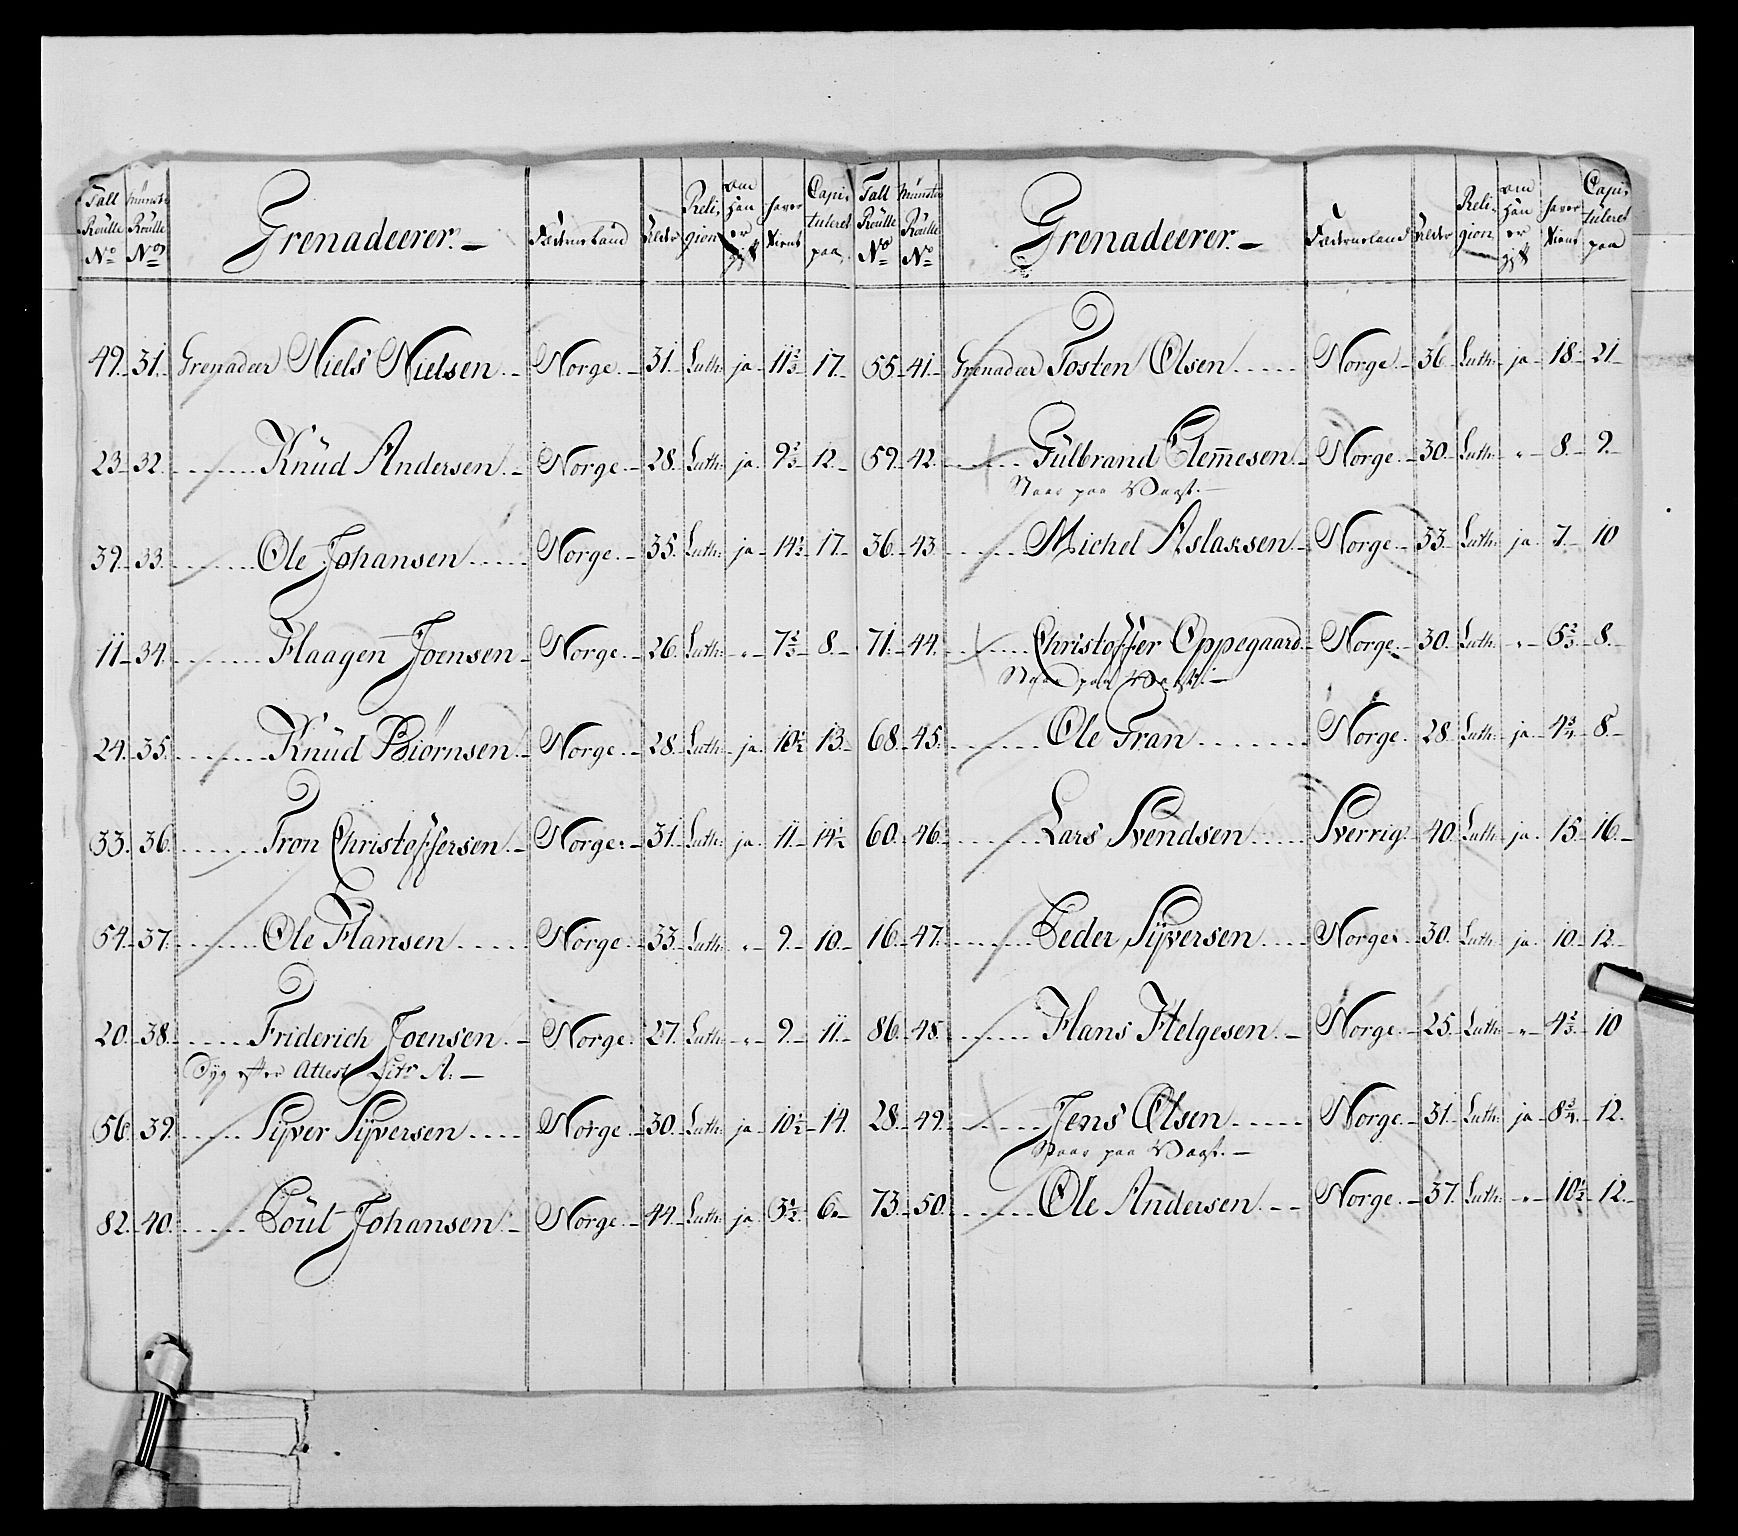 Tall Roulle No | Münster Roulle No | Grenadeerer. | Fæderneland | Alder | Religion | om han er gift | haver tient | Capituleret paa
49. 31. Grenadeer Niels Nielsen. Norge. 31. Luth: ja 11 2/3 17.
23 32. Knüd Andersen. Norge. 28. Luth: ja 9 2/3 12
39. 33. Ole Johansen Norge. 35. Luth: ja 14 1/2 17
11 34. Haagen Joensen Norge. 26. Luth: " 7 2/3 8.
24. 35. Knüd Biørnsen Norge. 28. Luth: ja 10 1/2 13
33. 36. Tron Christoffersen. Norge. 31. Luth: ja 11 14 1/2
54. 37. Ole Hansen Norge. 33. Luth: " 9. 10.
20. 38. Friderich Joensen. Norge. 27. Luth: " 9. 11.
Syg efter Attest Litr A.
56. 39. Syver Syversen Norge. 30. Luth: ja 10 1/2 14.
82. 40. Poül Johansen Norge. 44. Luth: ja 3 1/2 6.
Tall Roulle No | Münster Roulle No | Grenadeerer. | Fæderneland | Alder | Religion | om han er gift | haver tient | Capituleret paa
55 41. Grenadeer Tosten Olsen Norge. 36 Luth: ja 18 21
59. 42. Gülbrand Clemmesen Norge. 30. Luth: " 8. 9.
Staar paa Vagt.
36. 43. Michel Aslaksen Norge. 33. Luth: ja 7. 10
71. 44. Christoffer Oppegaard Norge. 30. Luth: " 5 2/3 8.
Staar paa Vagt.
68. 45. Ole Tran Norge. 28. Luth: ja 4 3/4 8.
60. 46. Lars Svendsen Sverrig. 40. Luth: ja 15 16.
16. 47. Peder Syversen Norge. 30. Luth: ja 10 12.
86. 48. Hans Helgesen. Norge. 25. Luth: " 4 2/3 10
28. 49. Jens Olsen Norge. 31. Luth: ja 8 3/4 12.
Staar paa Vagt.
73. 50. Ole Andersen. Norge. 37. Luth: " 10 1/2 12.